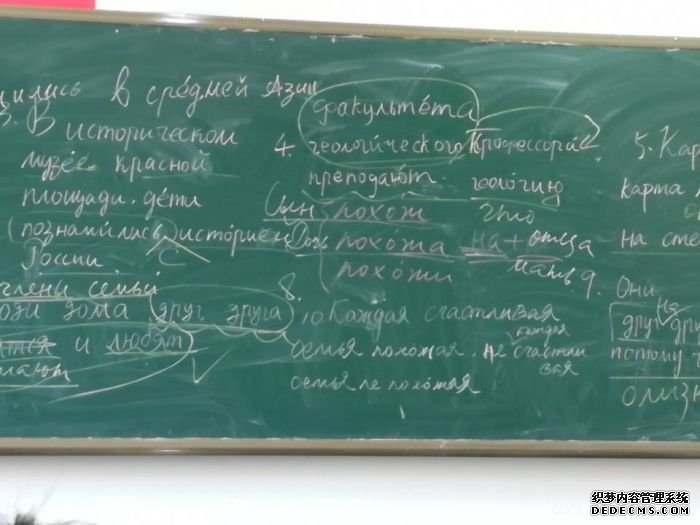 лись в средней Азии
3. В историческом
музее красной
площади. дети
(познамились) историей
России. С
члени семьи
дома друг друга
и любят
факультета
4. геологического Профессора
преподают. геологию
Сын похож что
Дочь похожа на + отца
похожи мать
8.
Каждая счастливая
семья похожая. не счастли
каждая
вая
семья не похожая.
5. Кар
карта,
на сте
9. Они
на
друг дру
потому
близк
织梦内容管理系统
DEDECMS.COM